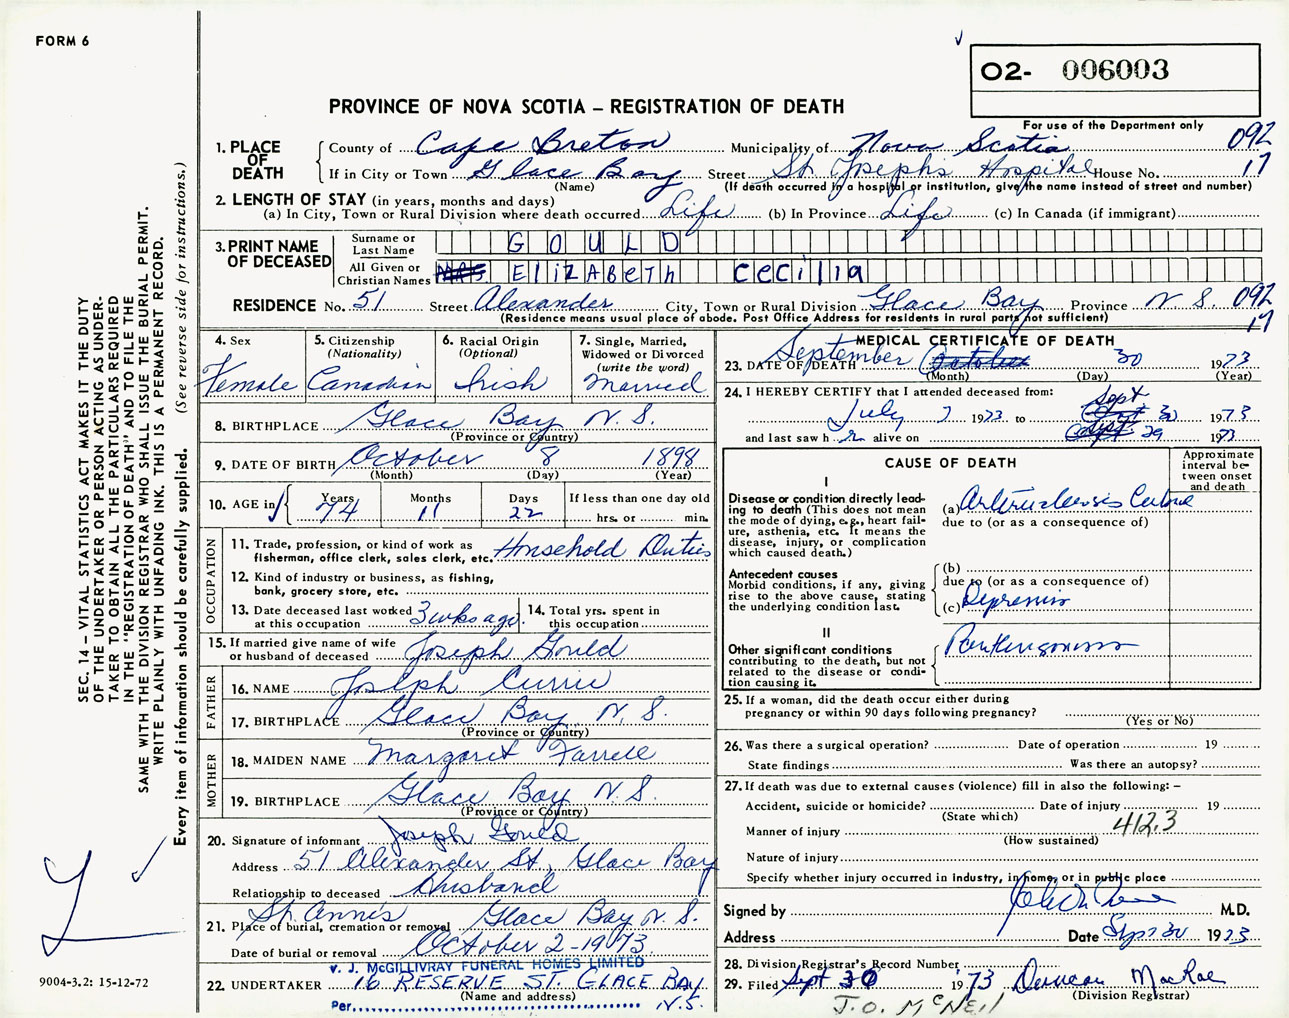 FORM 6
O2- 006003
PROVINCE OF NOVA SCOTIA – REGISTRATION OF DEATH
For use of the Department only
1. PLACE OF DEATH County of Cape Breton Municipality of Nova Scotia 092
If in City or Town Glace Bay Street St. Josephs Hospital House No. 17
(Name) (If death occurred in a hospital or institution, give the name instead of street and number)
2. LENGTH OF STAY (in years, months and days)
(a) In City, Town or Rural Division where death occurred Life (b) In Province Life (c) In Canada (if immigrant)
3. PRINT NAME OF DECEASED Surname or Last Name GOULD
All Given or Christian Names MRS ElizABeTh CeCilia
RESIDENCE No. 51 Street Alexander City, Town or Rural Division Glace Bay Province N S. 092
(Residence means usual place of abode. Post Office Address for residents in rural parts not sufficient) 17
4. Sex Female
5. Citizenship (Nationality) Canadian
6. Racial Origin (Optional) Irish
7. Single, Married, Widowed or Divorced (write the word) Married
8. BIRTHPLACE Glace Bay N. S.
(Province or Country)
9. DATE OF BIRTH October 8 1898
(Month) (Day) (Year)
10. AGE in Years 74 Months 11 Days 22 If less than one day old hrs. or min.
OCCUPATION
11. Trade, profession, or kind of work as fisherman, office clerk, sales clerk, etc. Household Duties
12. Kind of industry or business, as fishing, bank, grocery store, etc.
13. Date deceased last worked at this occupation 3 wks ago.
14. Total yrs. spent in this occupation
15. If married give name of wife or husband of deceased Joseph Gould
FATHER
16. NAME Joseph Currie
17. BIRTHPLACE Glace Bay, N. S.
(Province or Country)
MOTHER
18. MAIDEN NAME Margaret Farrell
19. BIRTHPLACE Glace Bay N. S.
(Province or Country)
20. Signature of informant Joseph Gould
Address 51 Alexander St, Glace Bay
Relationship to deceased Husband
21. Place of burial, cremation or removal St. Ann's Glace Bay N. S.
Date of burial or removal October 2-1973
V. J. McGILLIVRAY FUNERAL HOMES LIMITED
22. UNDERTAKER 16 RESERVE ST. GLACE BAY
(Name and address) N.S.
Per
MEDICAL CERTIFICATE OF DEATH
23. DATE OF DEATH September October 30 1973
(Month) (Day) (Year)
24. I HEREBY CERTIFY that I attended deceased from:
July 7 1973 to Sept 30 1973
and last saw h er alive on Sept 29 1973
CAUSE OF DEATH
Approximate interval between onset and death
I
Disease or condition directly leading to death (This does not mean the mode of dying, e.g., heart failure, asthenia, etc. It means the disease, injury, or complication which caused death.)
(a)
due to (or as a consequence of)
Antecedent causes
Morbid conditions, if any, giving rise to the above cause, stating the underlying condition last.
(b)
due to (or as a consequence of)
(c) Depression
II
Other significant conditions contributing to the death, but not related to the disease or condition causing it.
Parkinsonism
25. If a woman, did the death occur either during pregnancy or within 90 days following pregnancy?
(Yes or No)
26. Was there a surgical operation? Date of operation 19
State findings Was there an autopsy?
27. If death was due to external causes (violence) fill in also the following: –
Accident, suicide or homicide? Date of injury 19
(State which) 412.3
Manner of injury
(How sustained)
Nature of injury
Specify whether injury occurred in industry, in home, or in public place
Signed by M.D.
Address Date Sept 30 1973
28. Division Registrar's Record Number
29. Filed Sept 30 1973 Duncan MacRae
(Division Registrar)
J. O. McNeil
SEC. 14 – VITAL STATISTICS ACT MAKES IT THE DUTY
OF THE UNDERTAKER OR PERSON ACTING AS UNDER-
TAKER TO OBTAIN ALL THE PARTICULARS REQUIRED
IN THE "REGISTRATION OF DEATH" AND TO FILE THE
SAME WITH THE DIVISION REGISTRAR WHO SHALL ISSUE THE BURIAL PERMIT.
WRITE PLAINLY WITH UNFADING INK. THIS IS A PERMANENT RECORD.
Every item of information should be carefully supplied. (See reverse side for instructions.)
9004-3.2: 15-12-72